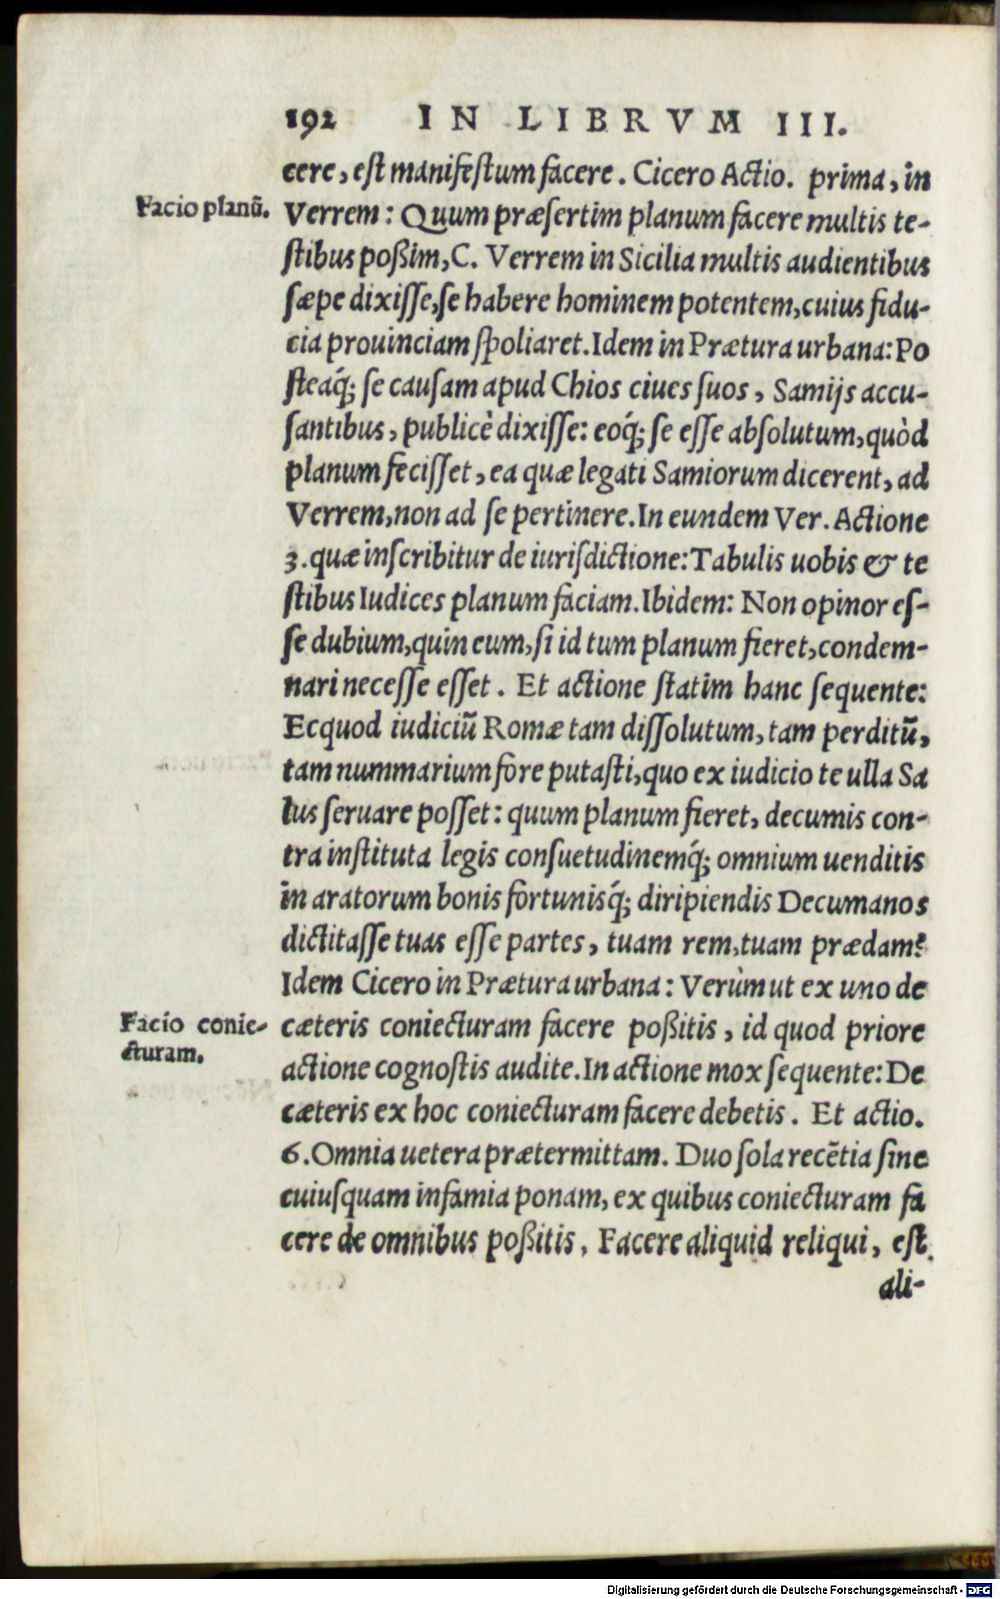 192 IN LIBRVM III.
cere, est manifestum facere. Cicero Actio. prima, in
Facio planū.
Verrem: Quum præsertim planum facere multis te-
stibus poßim, C. Verrem in Sicilia multis audientibus
sæpe dixisse, se habere hominem potentem, cuius fidu-
cia prouinciam spoliaret. Idem in Prætura urbana: Po
steaq́; se causam apud Chios ciues suos, Samijs accu-
santibus, publicè dixisse: eoq́; se esse absolutum, quòd
planum fecisset, ea quæ legati Samiorum dicerent, ad
Verrem, non ad se pertinere. In eundem Ver. Actione
3. quæ inscribitur de iurisdictione: Tabulis uobis & te
stibus Iudices planum faciam. Ibidem: Non opinor es-
se dubium, quin eum, si id tum planum fieret, condem-
nari necesse esset. Et actione statim hanc sequente:
Ecquod iudiciū Romæ tam dissolutum, tam perditū,
tam nummarium fore putasti, quo ex iudicio te ulla Sa
lus seruare posset: quum planum fieret, decumis con-
tra instituta legis consuetudinemq́; omnium uenditis
in aratorum bonis fortunisq́; diripiendis Decumanos
dictitasse tuas esse partes, tuam rem, tuam prædam?
Idem Cicero in Prætura urbana: Verùm ut ex uno de
Facio conie-
cturam.
cæteris coniecturam facere poßitis, id quod priore
actione cognostis audite. In actione mox sequente: De
cæteris ex hoc coniecturam facere debetis. Et actio.
6. Omnia uetera prætermittam. Duo sola recētia sine
cuiusquam infamia ponam, ex quibus coniecturam fa
cere de omnibus poßitis. Facere aliquid reliqui, est
ali-
Digitalisierung gefördert durch die Deutsche Forschungsgemeinschaft - DFG